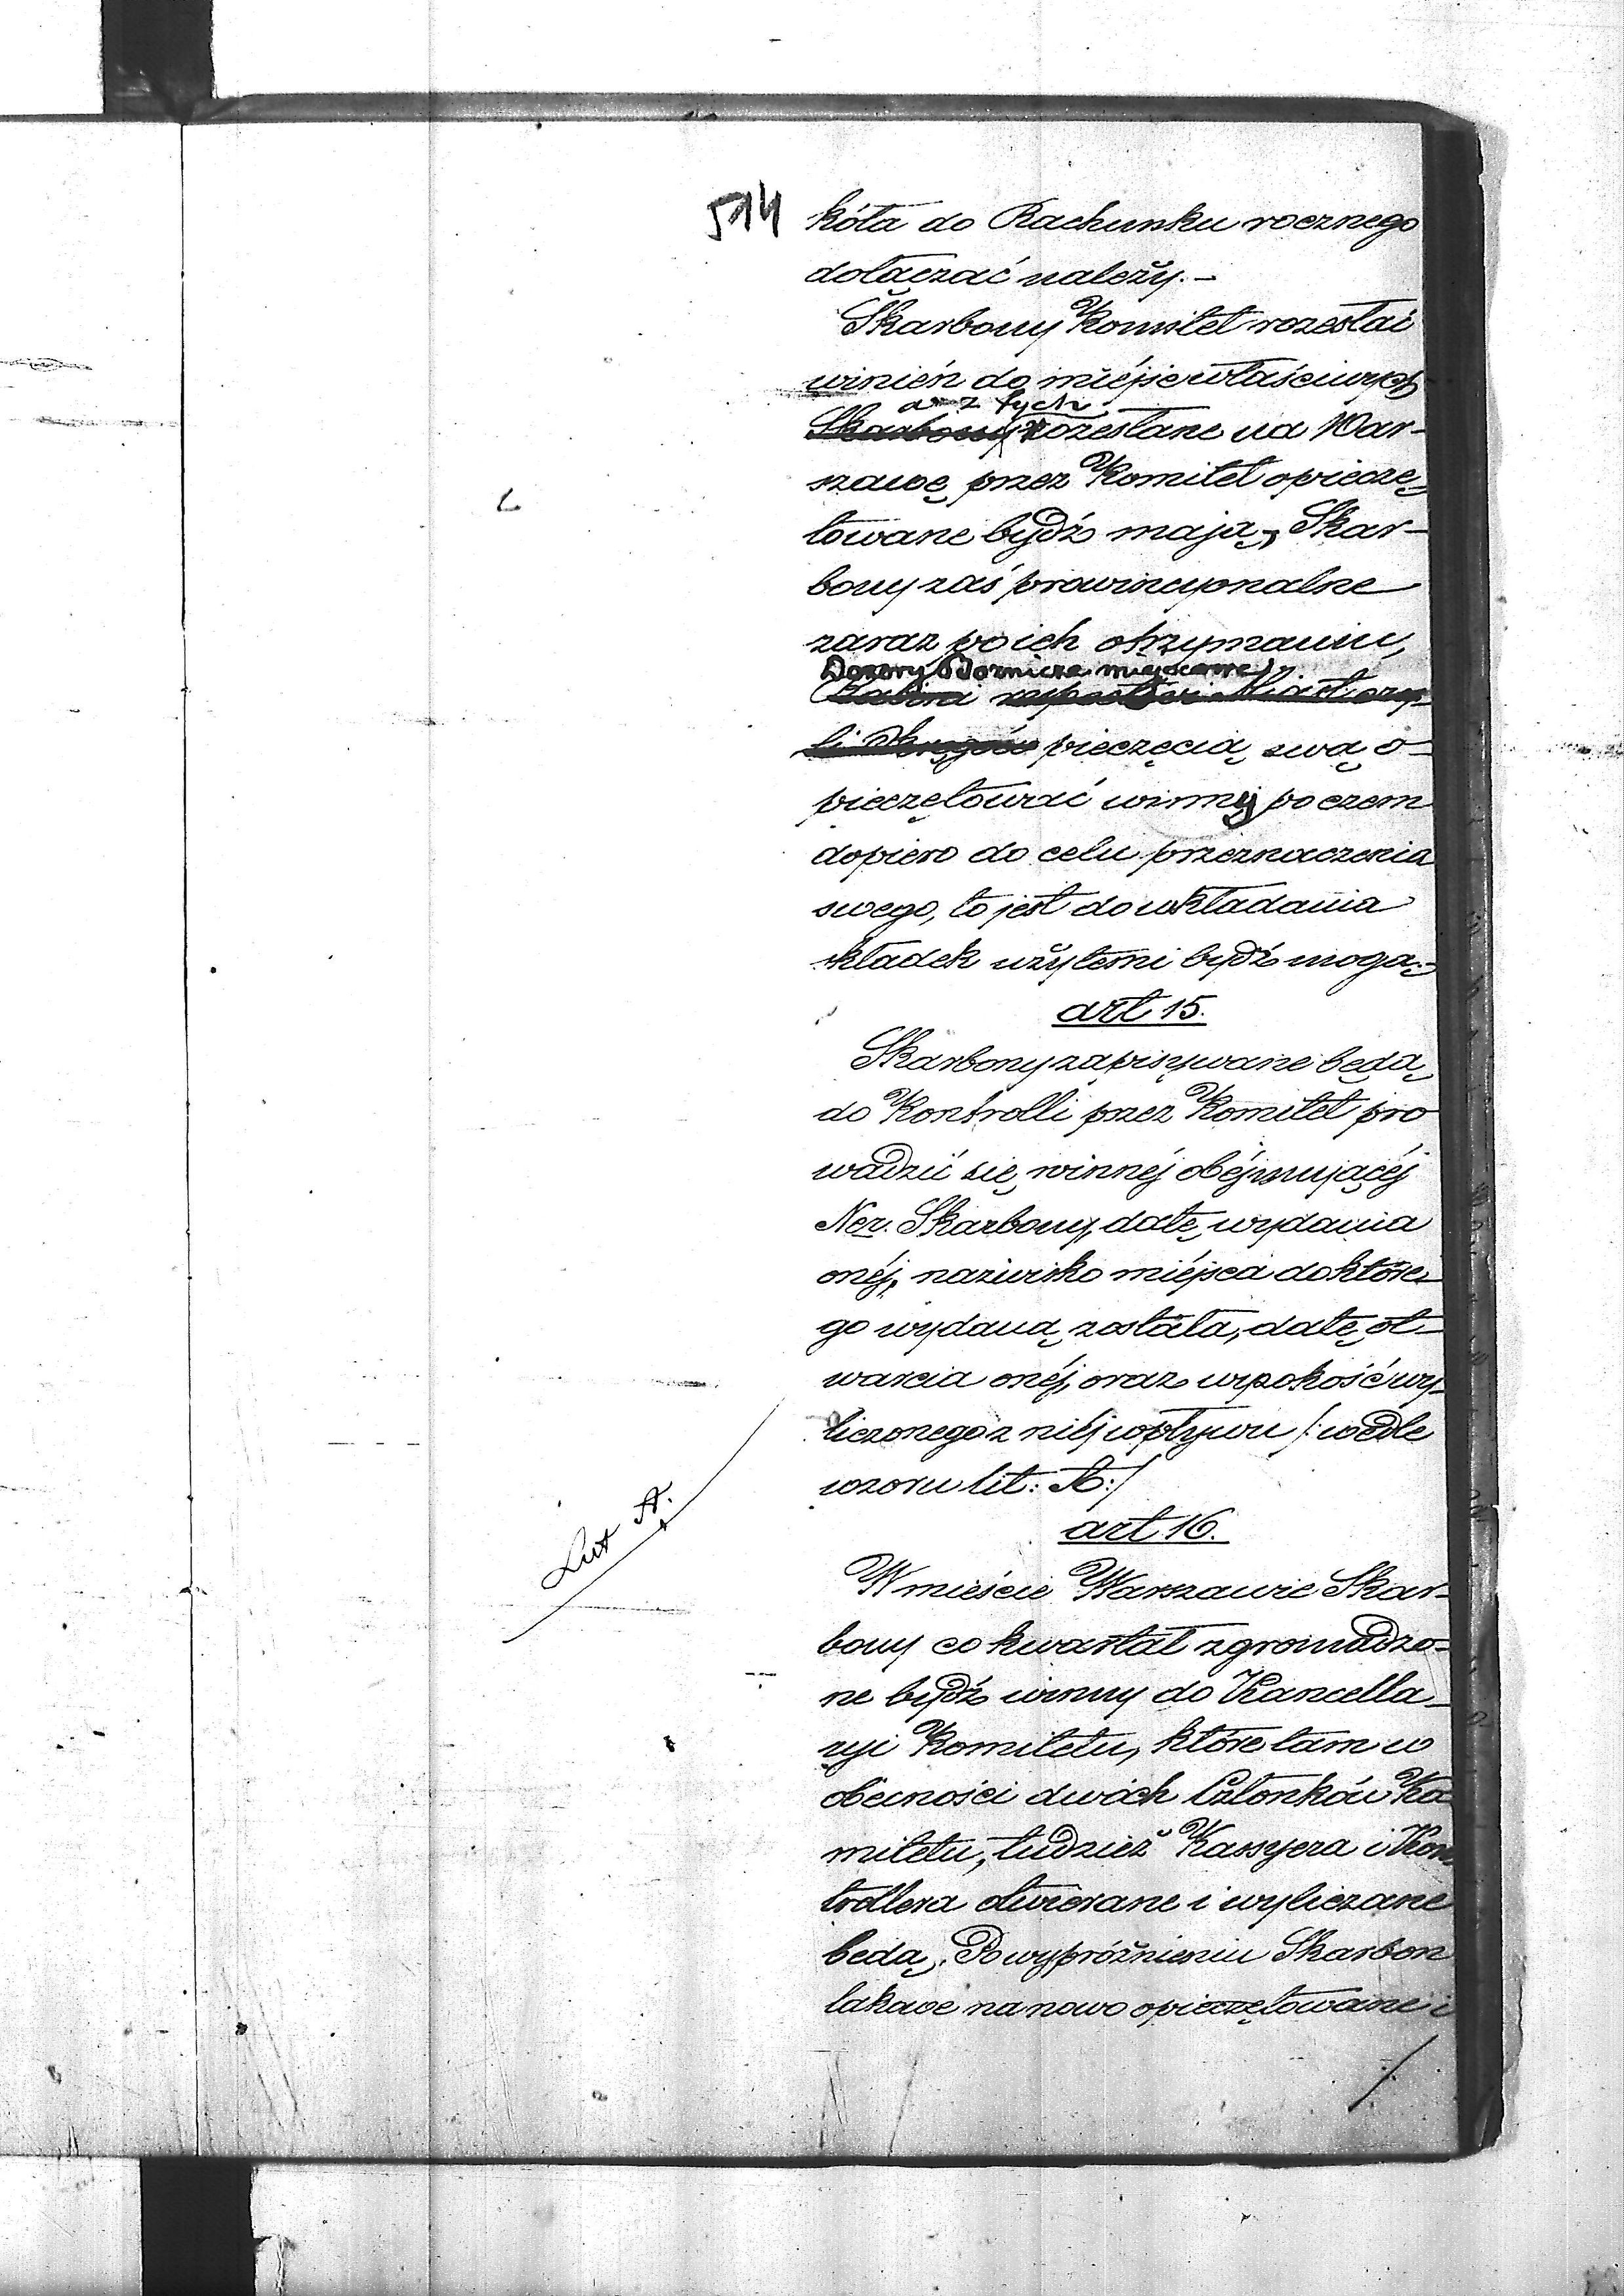 514
kóła do Rachunku rocznego
dołączać należy.–
Skarbony Komitet rozesłać
winién do miéjsc właściwych
a z tych
Skarbony rozesłane na War-
szawę przez Komitet opieczę-
towane bydź mają, Skar-
bony zaś prowincyonalne
zaraz po ich otrzymaniu,
Dozory Bóżnicze miejscowe
Rabini respective Miast czy-
li Okręgów pieczęcią swą o-
pieczętować winny poczem
dopiero do celu przeznaczenia
swego, to jest do wkładania
składek użytemi bydź mogą.–
art 15.
Skarbony zapisywane będą
do Kontrolli przez Komitet pro
wadzić się winnéj obéjmującéj
Ner. Skarbony, datę wydania
onéj, nazwisko miéjsca do które-
go wydaną została, datę ot-
warcia onéj, oraz wysokość wy-
liczonego z niéj wpływu /: wedle
wzoru lit: A:/
Lit A.
art 16.
W mieście Warszawie Skar-
bony co kwartał zgromadzo-
ne bydź winny do Kancella-
ryi Komitetu, które tam w
obecności dwóch Członków Ko
mitetu, tudzież Kassyera i Kon
trollera otwierane i wyliczane
będą. Po wypróżnieniu Skarbon
takowe na nowo opieczętowane i